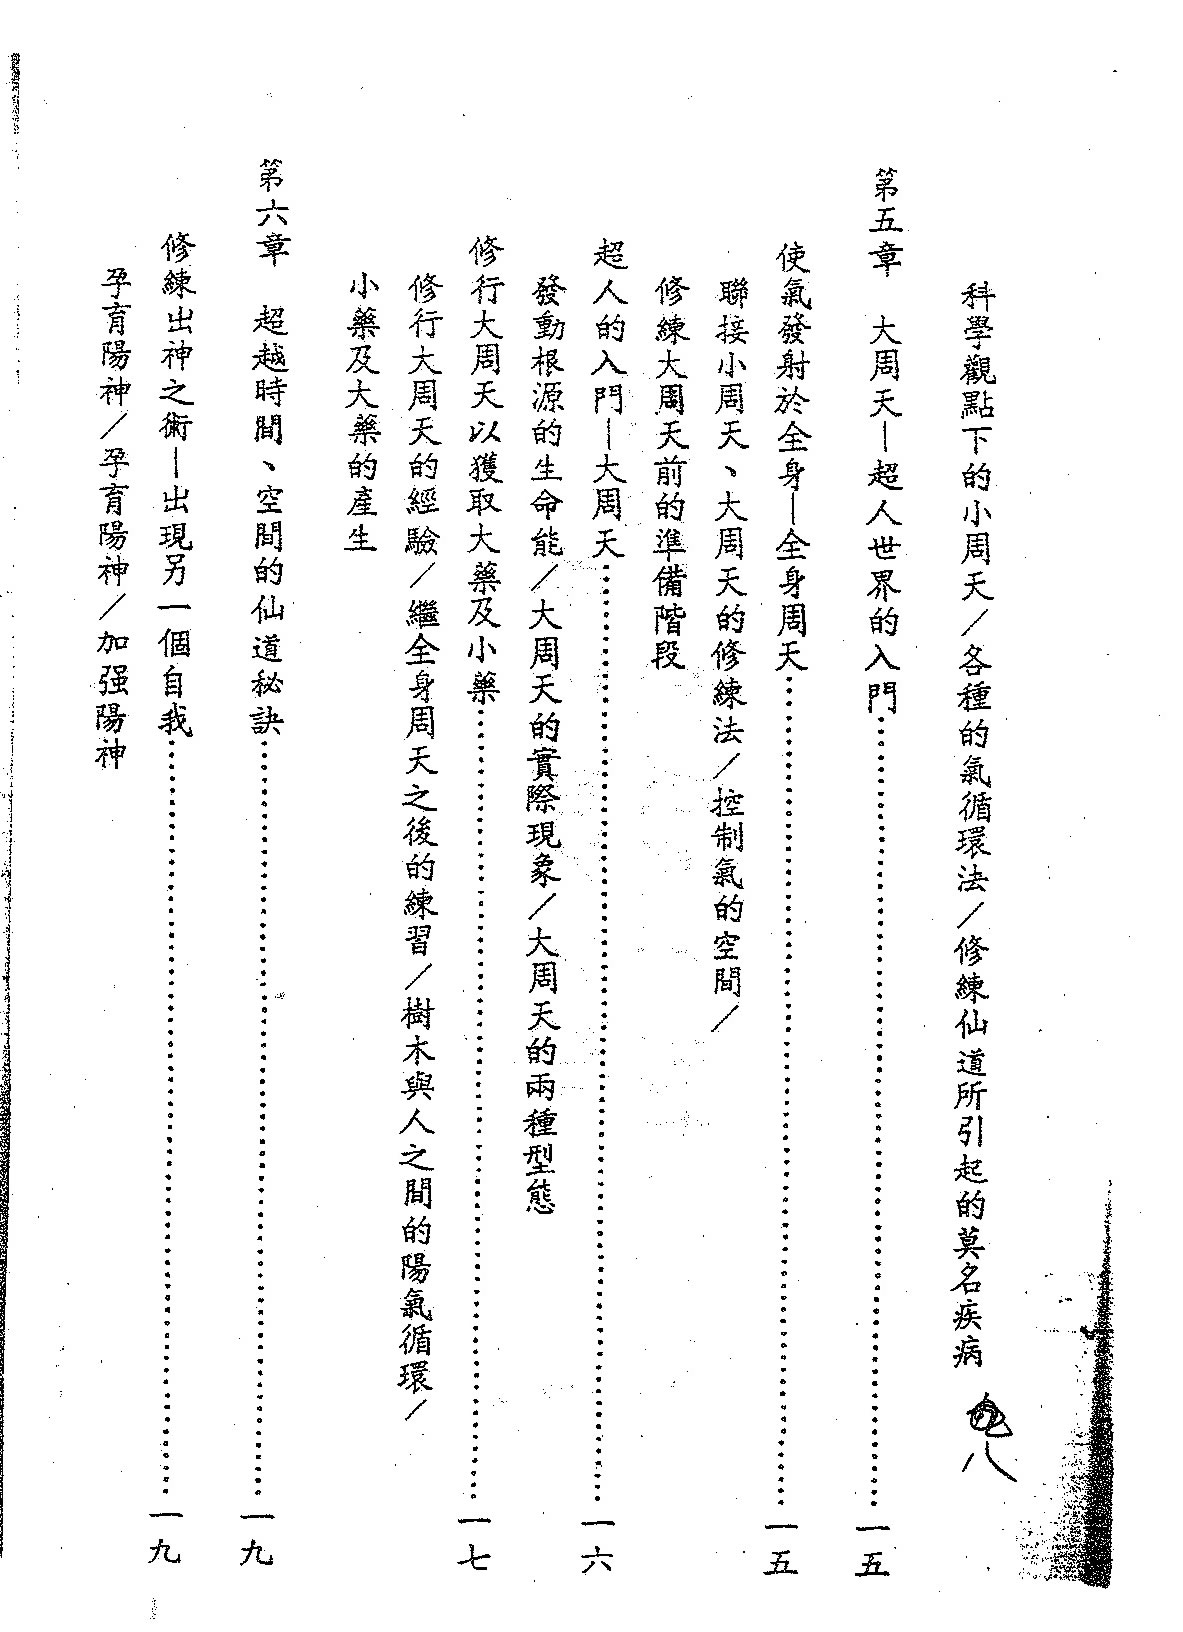 科學觀點下的小周天／各種的氣循環法／修練仙道所引起的莫名疾病
八
第五章　大周天—超人世界的入門……………………一五
使氣發射於全身—全身周天……………………一五
聯接小周天、大周天的修練法／控制氣的空間／
修練大周天前的準備階段
超人的入門—大周天……………………一六
發動根源的生命能／大周天的實際現象／大周天的兩種型態
修行大周天以獲取大藥及小藥……………………一七
修行大周天的經驗／繼全身周天之後的練習／樹木與人之間的陽氣循環／
小藥及大藥的產生
第六章　超越時間、空間的仙道秘訣……………………一九
修練出神之術—出現另一個自我……………………一九
孕育陽神／孕育陽神／加强陽神